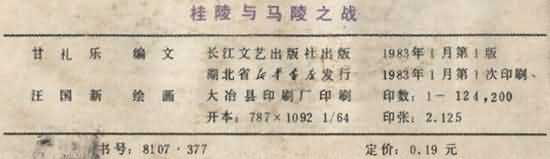 桂陵与马陵之战
甘礼乐 编文 长江文艺出版社出版 1983年1月第1版
湖北省新华书店发行 1983年1月第1次印刷
汪国新 绘画 大冶县印刷厂印刷 印数:1—124,200
开本:787×1092 1/64 印张:2.125
书号:8107·377 定价:0.19元